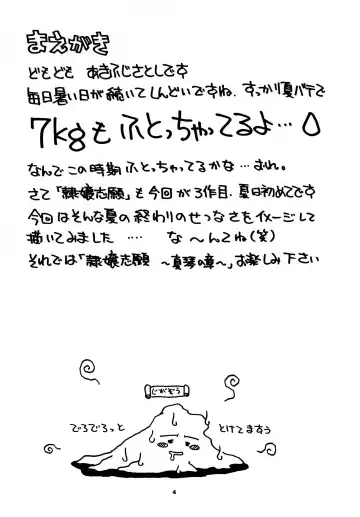 まえがき
どもども あきふじさとしです
毎日暑い日が続いてしんどいですね. すっかり夏バテで
7kgもふとっちゃってるよ…
なんでこの時期ふとっちゃってるかな…おれ。
さて「隷嬢志願」も今回が3作目. 夏は初めてです
今回はそんな夏の終わりのせつなさをイメージして
描いてみました …. な〜んてね(笑)
それでは「隷嬢志願 〜真琴の章〜」お楽しみ下さい
じがぞう
でろでろっと とけてますぅ
4